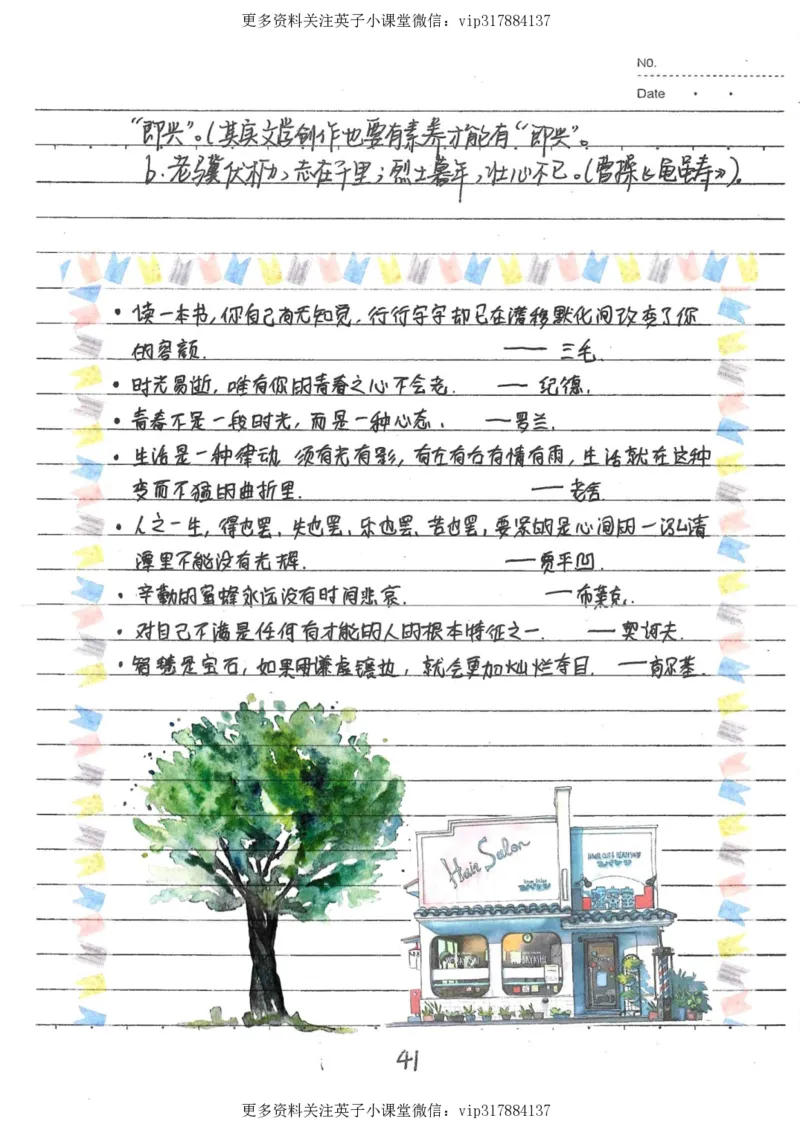 更多资料关注英子小课堂微信：vip317884137
No.
Date
“即兴”。(其实文学创作也要有素养才能有“即兴”。
b.老骥伏枥，志在千里；烈士暮年，壮心不已。(曹操《龟虽寿》)。
•读一本书，你自己尚无知觉，行行字字却已在潜移默化间改变了你
的容颜.
—— 三毛.
•时光易逝，唯有你的青春之心不会老. —— 纪德.
•青春不是一段时光，而是一种心态. ——罗兰.
•生活是一种律动 须有光有影，有左有右有情有雨，生活就在这种
变而不猛的曲折里. ——老舍.
•人之一生，得也罢、失也罢、乐也罢、苦也罢，要紧的是心间的一泓清
潭里不能没有光辉. ——贾平凹.
•辛勤的蜜蜂永远没有时间悲哀. ——布莱克.
•对自己不满是任何有才能的人的根本特征之一. ——契诃夫.
•智慧是宝石，如果用谦虚镶边，就会更加灿烂夺目. ——高尔基.
Hair Salon
HAIR CUT &
41
更多资料关注英子小课堂微信：vip317884137